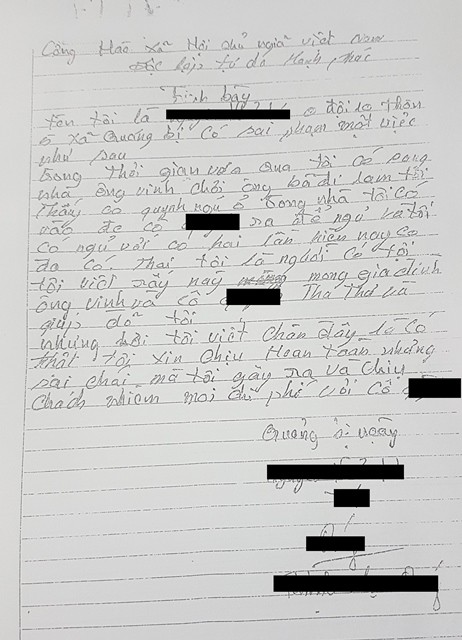 Cộng Hào Xã Hội chủ nghĩa việt Nam
độc lập tự do hạnh phúc
Trình bày
Tên tôi là ở đội 10 thôn
5 xã Quảng bị có sai phạm một việc
như sau
trong thời gian vừa qua tôi có sang
nhà ông vinh chơi ông bà đi làm tôi
thấy cô quỳnh ngủ ở trong nhà tôi có
vào đa cô ra để ngủ và tôi
có ngủ với cô hai lần hiện nay cô
đa có thai tôi là người có tội
tôi viết giấy này mong gia đình
ông vinh và cô Tha Thứ và
giúp đỡ tôi
những lời tôi viết chên đây là có
thật tôi xin chịu Hoan toàn những
sai chai mà tôi gây ra và chịu
chách nhiệm mọi chi phí với cô
Quảng bị ngày